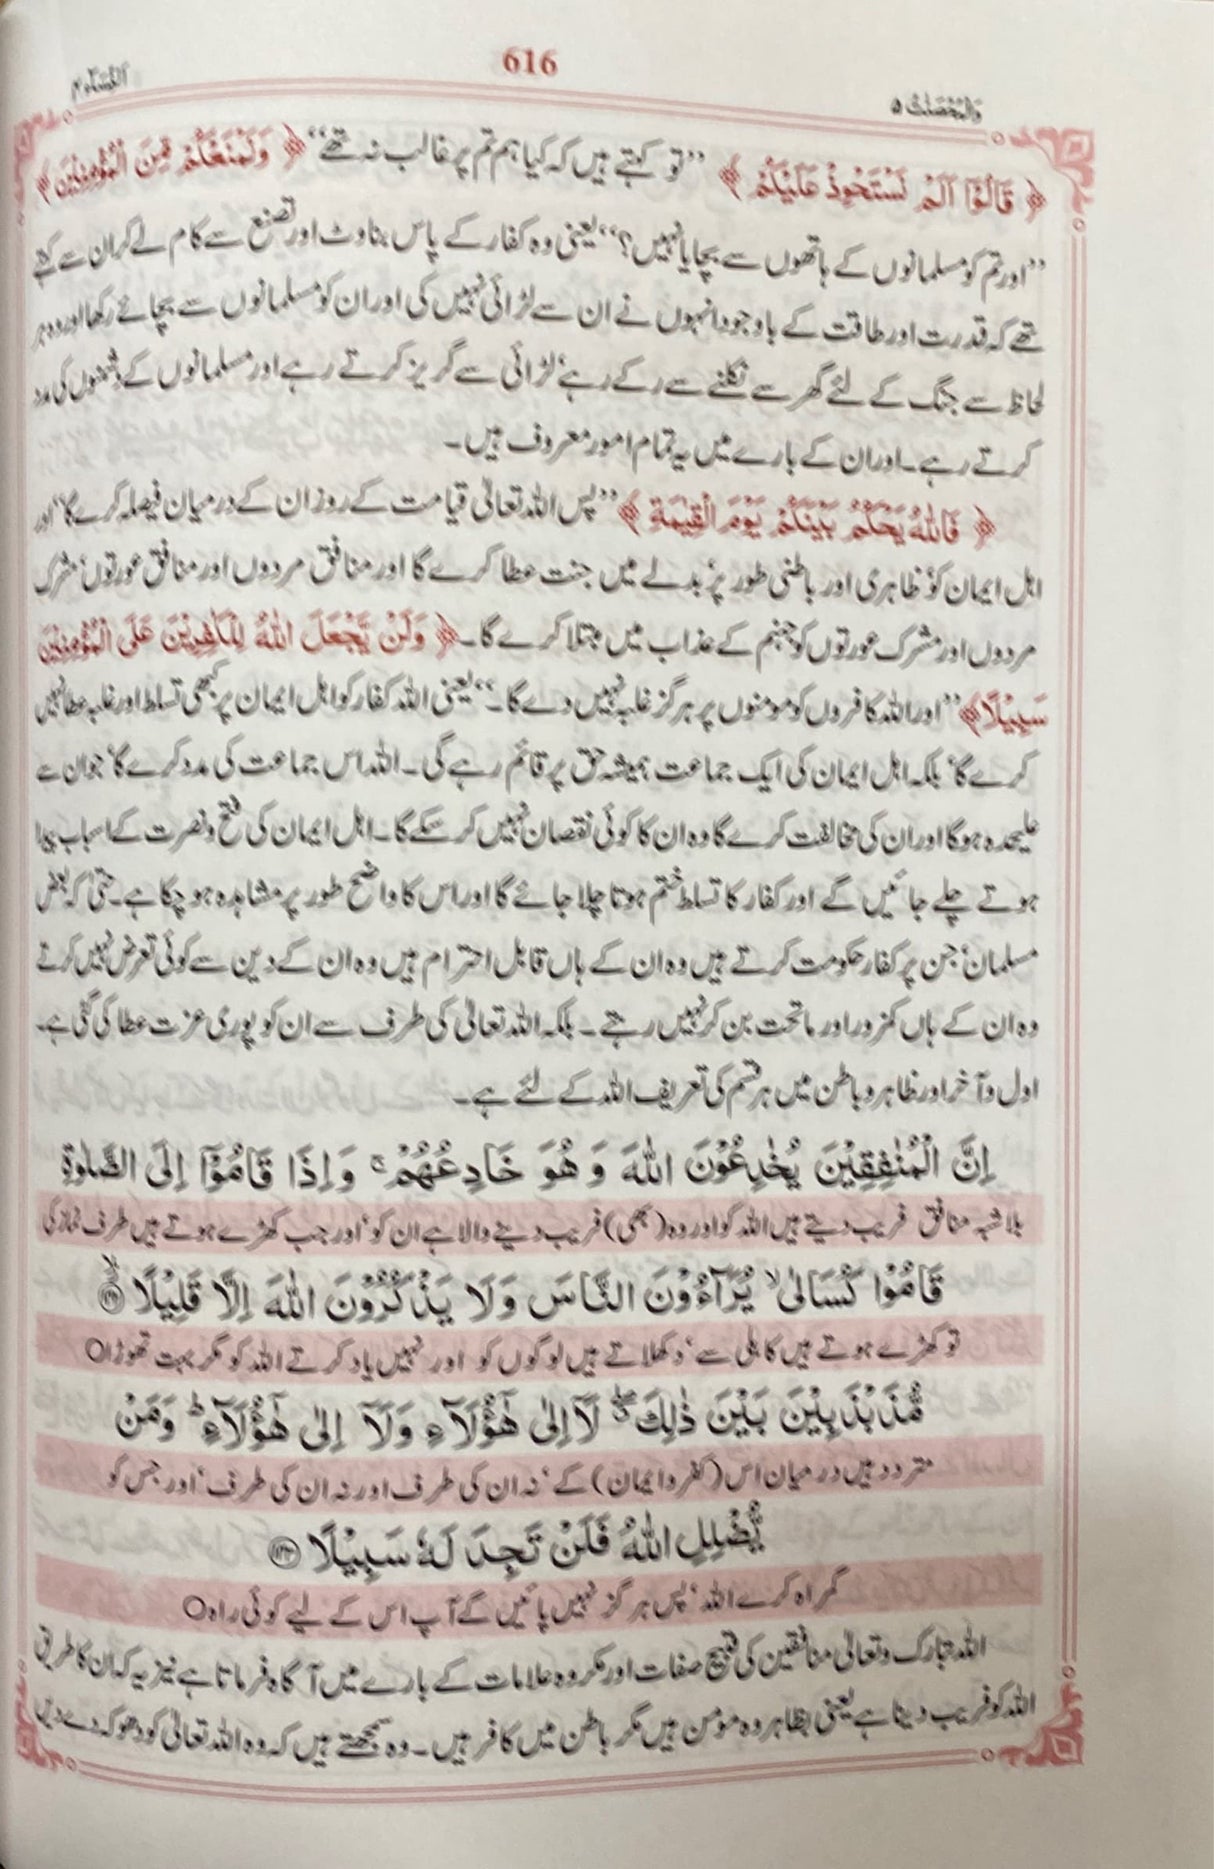 النسآء ۴
616
والمحصنت ۵
﴿ قَالُوْٓا اَلَمْ نَسْتَحْوِذْ عَلَيْكُمْ ﴾ ’’تو کہتے ہیں کہ کیا ہم تم پر غالب نہ تھے‘‘ ﴿ وَنَمْنَعْكُمْ مِّنَ الْمُؤْمِنِيْنَ ﴾
’’اور تم کو مسلمانوں کے ہاتھوں سے بچایا نہیں؟‘‘ یعنی وہ کفار کے پاس بناوٹ اور تصنع سے کام لے کر ان سے کہتے
تھے کہ قدرت اور طاقت کے باوجود انہوں نے ان سے لڑائی نہیں کی اور ان کو مسلمانوں سے بچائے رکھا اور وہ ہر
لحاظ سے جنگ کے لئے گھر سے نکلنے سے رکے رہے‘ لڑائی سے گریز کرتے رہے اور مسلمانوں کے دشمنوں کی مدد
کرتے رہے۔ اور ان کے بارے میں یہ تمام امور معروف ہیں۔
﴿ فَاللّٰهُ يَحْكُمُ بَيْنَكُمْ يَوْمَ الْقِيٰمَةِ ﴾ ’’پس اللہ تعالیٰ قیامت کے روز ان کے درمیان فیصلہ کرے گا‘‘ اور
اہل ایمان کو‘ ظاہری اور باطنی طور پر‘ بدلے میں جنت عطا کرے گا اور منافق مردوں اور منافق عورتوں‘ مشرک
مردوں اور مشرک عورتوں کو جہنم کے عذاب میں مبتلا کرے گا۔ ﴿ وَلَنْ يَّجْعَلَ اللّٰهُ لِلْكٰفِرِيْنَ عَلَى الْمُؤْمِنِيْنَ
سَبِيْلًا﴾ ’’اور اللہ کافروں کو مومنوں پر ہرگز غلبہ نہیں دے گا۔‘‘ یعنی اللہ کفار کو اہل ایمان پر کبھی تسلط اور غلبہ عطا نہیں
کرے گا‘ بلکہ اہل ایمان کی ایک جماعت ہمیشہ حق پر قائم رہے گی۔ اللہ اس جماعت کی مدد کرے گا‘ جو ان سے
علیحدہ ہوگا اور ان کی مخالفت کرے گا وہ ان کا کوئی نقصان نہیں کر سکے گا۔ اہل ایمان کی فتح و نصرت کے اسباب پیدا
ہوتے چلے جائیں گے اور کفار کا تسلط ختم ہوتا چلا جائے گا اور اس کا واضح طور پر مشاہدہ ہو چکا ہے۔ حتیٰ کہ بعض
مسلمان‘ جن پر کفار حکومت کرتے ہیں وہ ان کے ہاں قابل احترام ہیں وہ ان کے دین سے کوئی تعرض نہیں کرتے
وہ ان کے ہاں کمزور اور ماتحت بن کر نہیں رہتے۔ بلکہ اللہ تعالیٰ کی طرف سے ان کو پوری عزت عطا کی گئی ہے۔
اول و آخر اور ظاہر و باطن میں ہر قسم کی تعریف اللہ کے لئے ہے۔
اِنَّ الْمُنٰفِقِيْنَ يُخٰدِعُوْنَ اللّٰهَ وَ هُوَ خَادِعُهُمْ ۚ وَ اِذَا قَامُوْٓا اِلَى الصَّلٰوةِ
بلاشبہ منافق فریب دیتے ہیں اللہ کو اور وہ (بھی) فریب دینے والا ہے ان کو‘ اور جب کھڑے ہوتے ہیں طرف نماز کی
قَامُوْا كُسَالٰى ۙ يُرَآءُوْنَ النَّاسَ وَ لَا يَذْكُرُوْنَ اللّٰهَ اِلَّا قَلِيْلًا ۝۱۴۲
تو کھڑے ہوتے ہیں کاہلی سے‘ دکھلاتے ہیں لوگوں کو اور نہیں یاد کرتے اللہ کو مگر بہت تھوڑا○
مُّذَبْذَبِيْنَ بَيْنَ ذٰلِكَ ۖ لَآ اِلٰى هٰٓؤُلَآءِ وَ لَآ اِلٰى هٰٓؤُلَآءِ ؕ وَ مَنْ
متردد ہیں درمیان اس (کفر و ایمان) کے‘ نہ ان کی طرف اور نہ ان کی طرف‘ اور جس کو
يُّضْلِلِ اللّٰهُ فَلَنْ تَجِدَ لَهٗ سَبِيْلًا ۝۱۴۳
گمراہ کرے اللہ‘ پس ہرگز نہیں پائیں گے آپ اس کے لیے کوئی راہ○
اللہ تبارک و تعالیٰ منافقین کی قبیح صفات اور مکروہ علامات کے بارے میں آگاہ فرماتا ہے نیز یہ کہ ان کا طریق
اللہ کو فریب دینا ہے یعنی بظاہر وہ مومن ہیں مگر باطن میں کافر ہیں۔ وہ سمجھتے ہیں کہ وہ اللہ تعالیٰ کو دھوکہ دے دیں